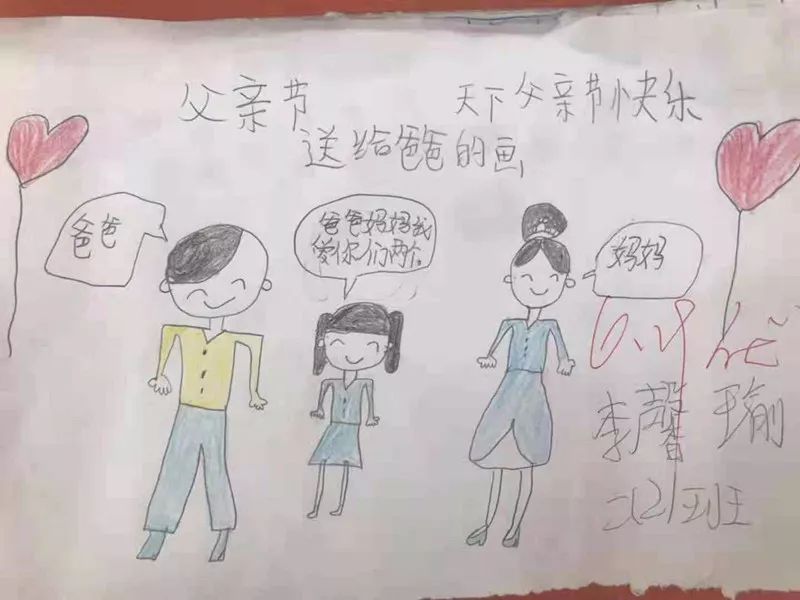 父亲节
天下父亲节快乐
送给爸爸的画
爸爸
爸爸妈妈我
爱你们两个
妈妈
优
李馨瑜
二(2)班